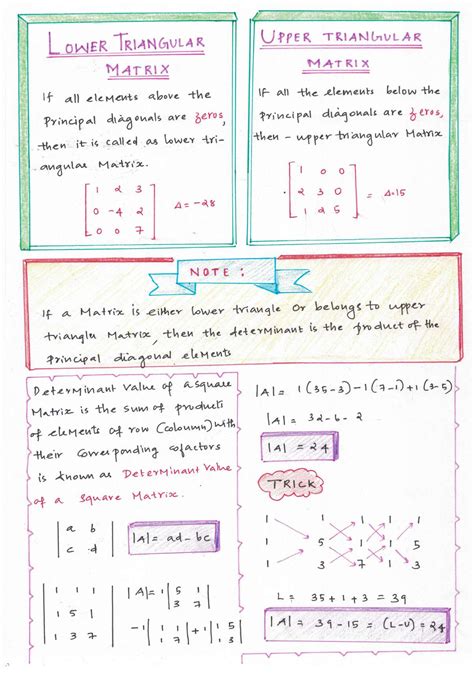 LOWER TRIANGULAR
MATRIX
If all elements above the
Principal diagonals are zeros,
then it is called as lower tri-
angular Matrix.
1 2 3
0 -4 2
0 0 7
Δ = -28
UPPER TRIANGULAR
MATRIX
If all the elements below the
Principal diagonals are zeros,
then - upper triangular Matrix
1 0 0
2 3 0
1 2 5
= Δ=15
NOTE :
If a Matrix is either lower triangle Or belongs to upper
triangle Matrix, then the determinant is the product of the
Principal diagonal elements
Determinant Value of a square
Matrix is the sum of products
of elements of row (coloumn) with
their Corresponding cofactors
is known as Determinant Value
of a Square Matrix.
a b
c d
|A| = ad - bc
1 1 1
1 5 1
1 3 7
|A| = 1 |5 1|
|3 7|
-1 |1 1| + 1 |1 5|
|1 7| |1 3|
|A| = 1(35-3) - 1(7-1) + 1(3-5)
|A| = 32 - 6 - 2
|A| = 24
TRICK
1 1 1 1 1
1 5 1 1 5
1 3 7 1 3
L = 35 + 1 + 3 = 39
|A| = 39 - 15 = (L-U) = 24